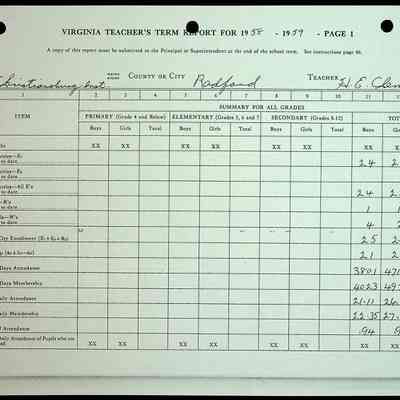 VIRGINIA TEACHER'S TERM REPORT FOR 1958 - 1959 - PAGE 1
A copy of this report must be submitted to the Principal or Superintendent at the end of the school term. See instructions page 46.
Christiansburg Inst. COUNTY OR CITY Radford TEACHER H. E. Clem
1 2 3 4 5 6 7 8 9 10 11
SUMMARY FOR ALL GRADES
ITEM PRIMARY (Grade 4 and Below) ELEMENTARY (Grades 5, 6 and 7) SECONDARY (Grades 8-12) TOT
Boys Girls Total Boys Girls Total Boys Girls Total Boys
XX XX XX XX XX XX XX XX
to date 24 2
to date
to date 24 2
to date 1 1
to date 4 2
City Enrollment 25 2
21 2
Days Attendance 3801 471
Days Membership 4023 497
Daily Attendance 21.11 26.
Daily Membership 22.35 27.
Attendance .94 .9
Daily Attendance of Pupils who on XX XX XX XX XX XX XX XX